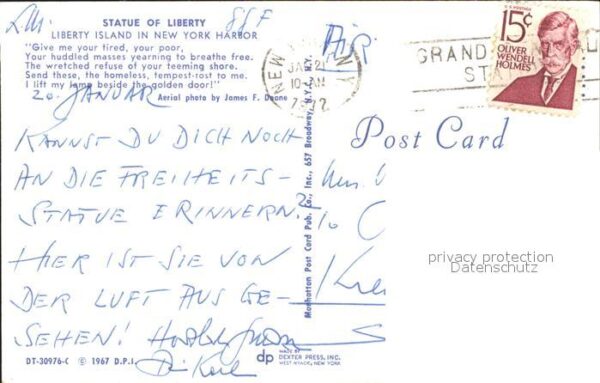 STATUE OF LIBERTY
LIBERTY ISLAND IN NEW YORK HARBOR
"Give me your tired, your poor,
Your huddled masses yearning to breathe free.
The wretched refuse of your teeming shore.
Send these, the homeless, tempest-tost to me.
I lift my lamp beside the golden door!"
20. JANUAR
Aerial photo by James F. Doane
KANNST DU DICH NOCH
AN DIE FREIHEITS-
STATUE ERINNERN?
HIER IST SIE VON
DER LUFT AUS GE-
SEHEN!
DT-30976-C © 1967 D.P.I.
Manhattan Post Card Pub. Co., Inc., 657 Broadway, N.Y.C., N.Y.
dp MADE BY
DEXTER PRESS, INC.
WEST NYACK, NEW YORK
AIR
NEW NY
JAN 21
10 AM
GRAND
STA
U.S. POSTAGE
15¢
OLIVER
WENDELL
HOLMES
Post Card
To
privacy protection
Datenschutz